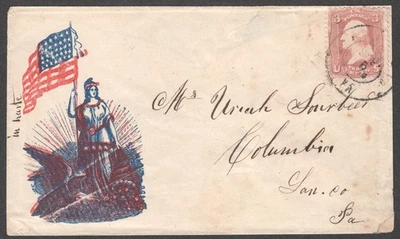 in haste
Mr Uriah Sourbier
Columbia
Lan. co
Pa
3
3